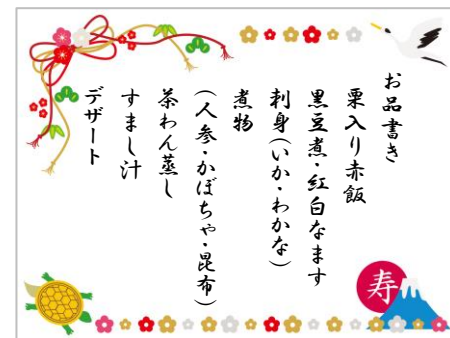 お品書き
栗入り赤飯
黒豆煮・紅白なます
刺身(いか・わかな)
煮物
(人参・かぼちゃ・昆布)
茶わん蒸し
すまし汁
デザート
寿